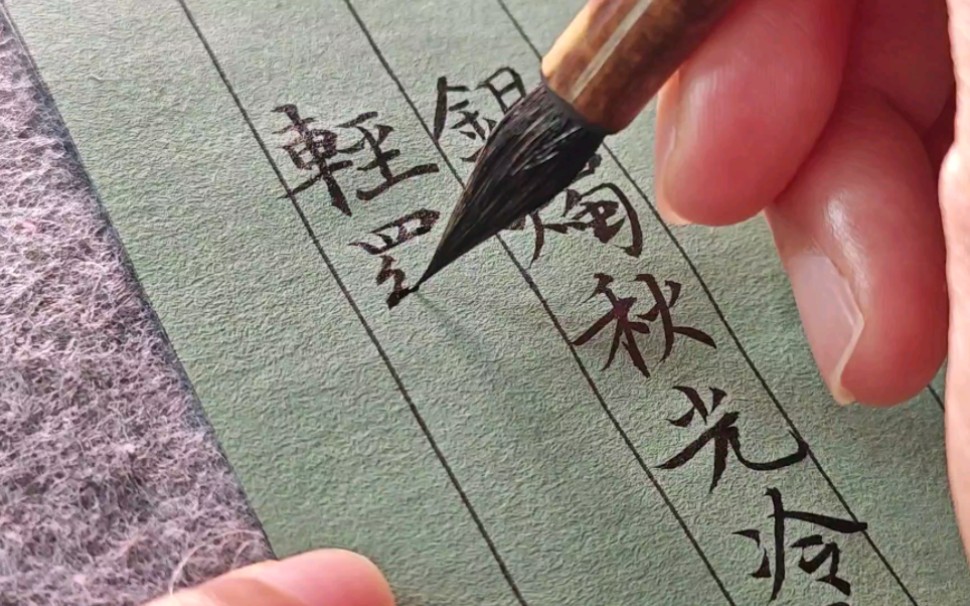 銀燭秋光冷
輕